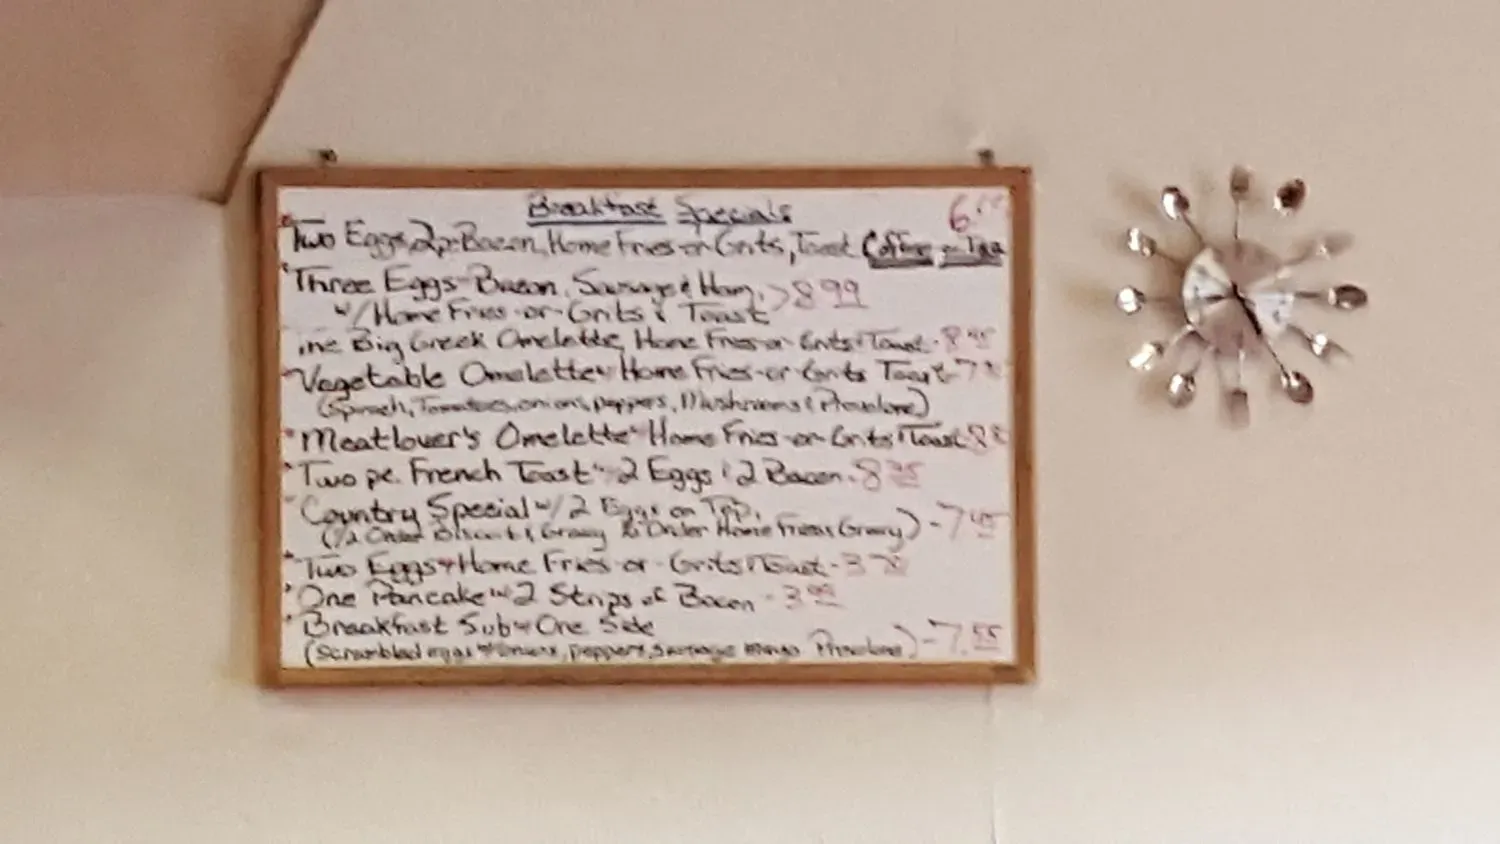 Breakfast Specials
Two Eggs, 2pc Bacon, Home Fries-or-Grits, Toast Coffee or Tea 6.
Three Eggs-Bacon, Sausage & Ham, > 8 99
w/Home Fries-or-Grits & Toast
Big Greek Omelette, Home Fries-or-Grits & Toast - 8
Vegetable Omelette w Home Fries-or-Grits Toast - 7
(Spinach, Tomatoes, onions, peppers, Mushrooms & Provolone)
Meatlover's Omelette w Home Fries-or-Grits & Toast 8
Two pc. French Toast w 2 Eggs & 2 Bacon - 8
Country Special w/2 Eggs on Top.
(1/2 Order Biscuits & Gravy 1/2 Order Home Fries & Gravy) - 7
Two Eggs & Home Fries-or-Grits & Toast - 3
One Pancake w 2 Strips of Bacon - 3 99
Breakfast Sub w One Side
(Scrambled eggs onions, peppers, sausage mayo Provolone) - 7.55